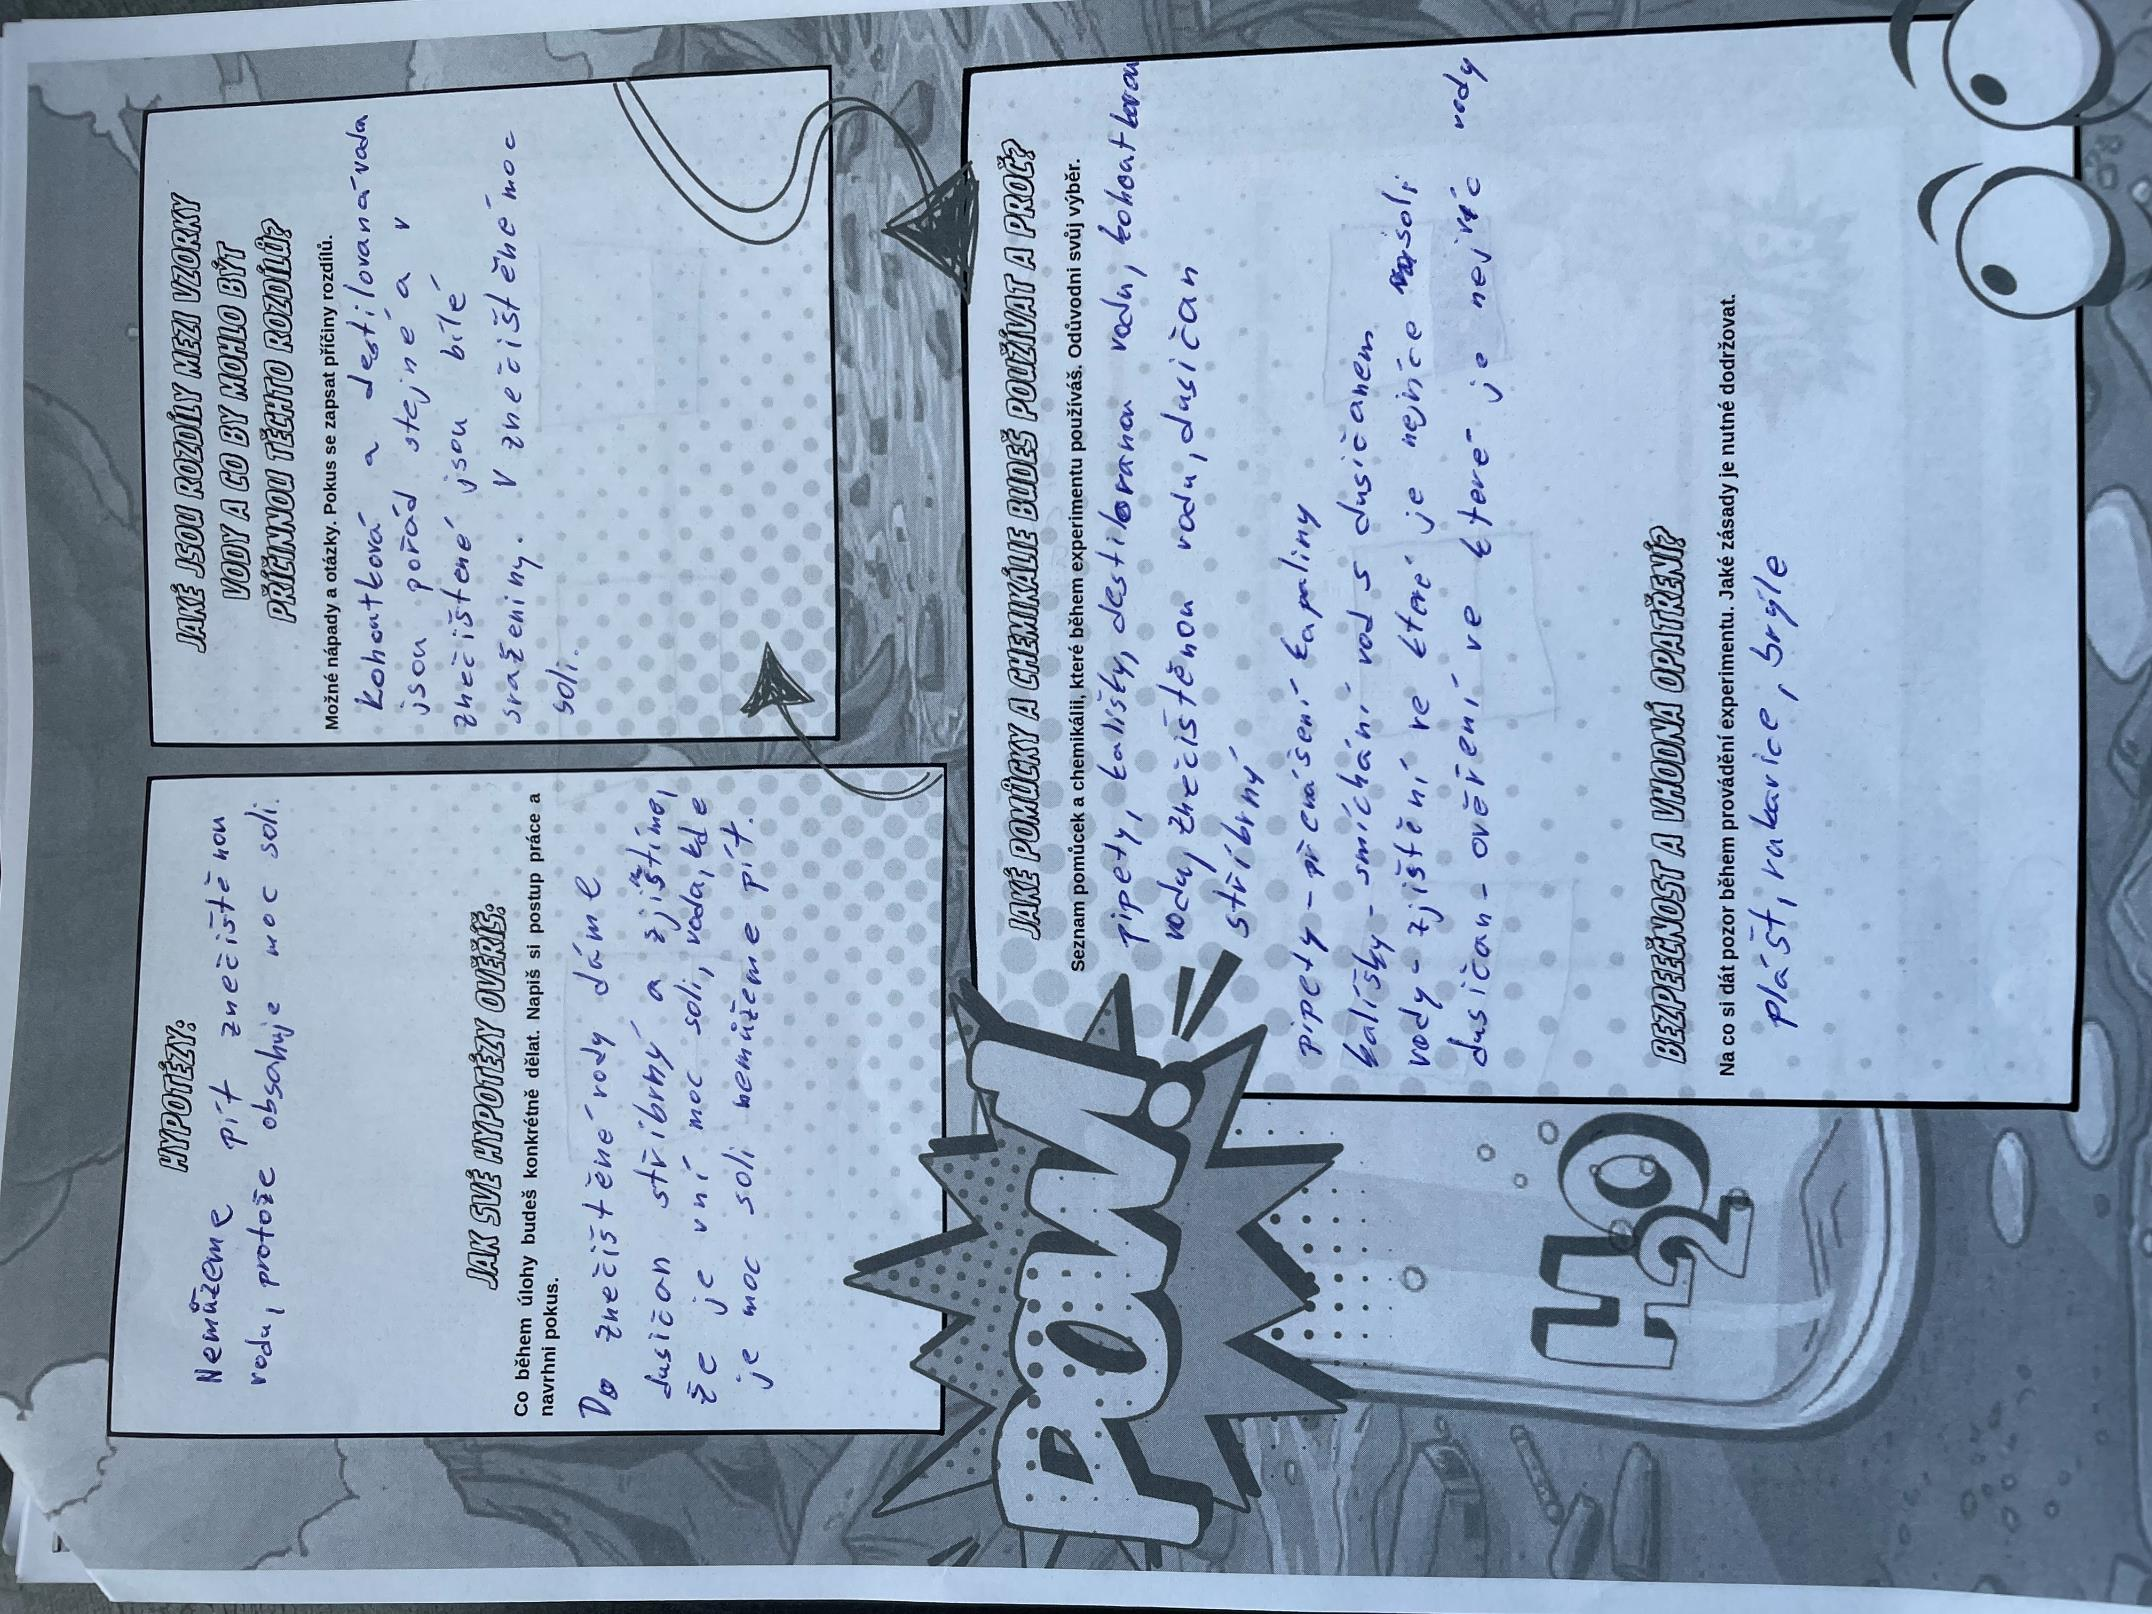 HYPOTÉZY:
Nemůžeme pít znečištěnou
vodu, protože obsahuje moc soli.
JAK SVÉ HYPOTÉZY OVĚŘÍŠ:
Co během úlohy budeš konkrétně dělat. Napiš si postup práce a
navrhni pokus.
Do znečištěné vody dáme
dusičan stříbrný a zjistíme,
že je vní moc soli, voda, kde
je moc soli nemůžeme pít.
JAKÉ JSOU ROZDÍLY MEZI VZORKY
VODY A CO BY MOHLO BÝT
PŘÍČINNOU TĚCHTO ROZDÍLŮ?
Možné nápady a otázky. Pokus se zapsat příčiny rozdílů.
kohoutková a destilovaná voda
jsou pořád stejné a v
znečištené jsou bílé
sraženiny. V znečištěné moc
soli.
JAKÉ POMŮCKY A CHEMIKÁLIE BUDEŠ POUŽÍVAT A PROČ?
Seznam pomůcek a chemikálií, které během experimentu používáš. Odůvodni svůj výběr.
pipety, kalíšky, destilovanou vodu, kohoutkovou
vodu, znečistěnou vodu, dusičan
stříbrný
pipety - přenášení kapaliny
kalíšky - smíchání vod s dusičanem
vody - zjištění ve které je nejvíce soli
dusičan - ověření ve které je nejvíc vody
BEZPEEČNOST A VHODNÁ OPATŘENÍ?
Na co si dát pozor během provádění experimentu. Jaké zásady je nutné dodržovat.
plášť, rukavice, brýle
POW!
H2O